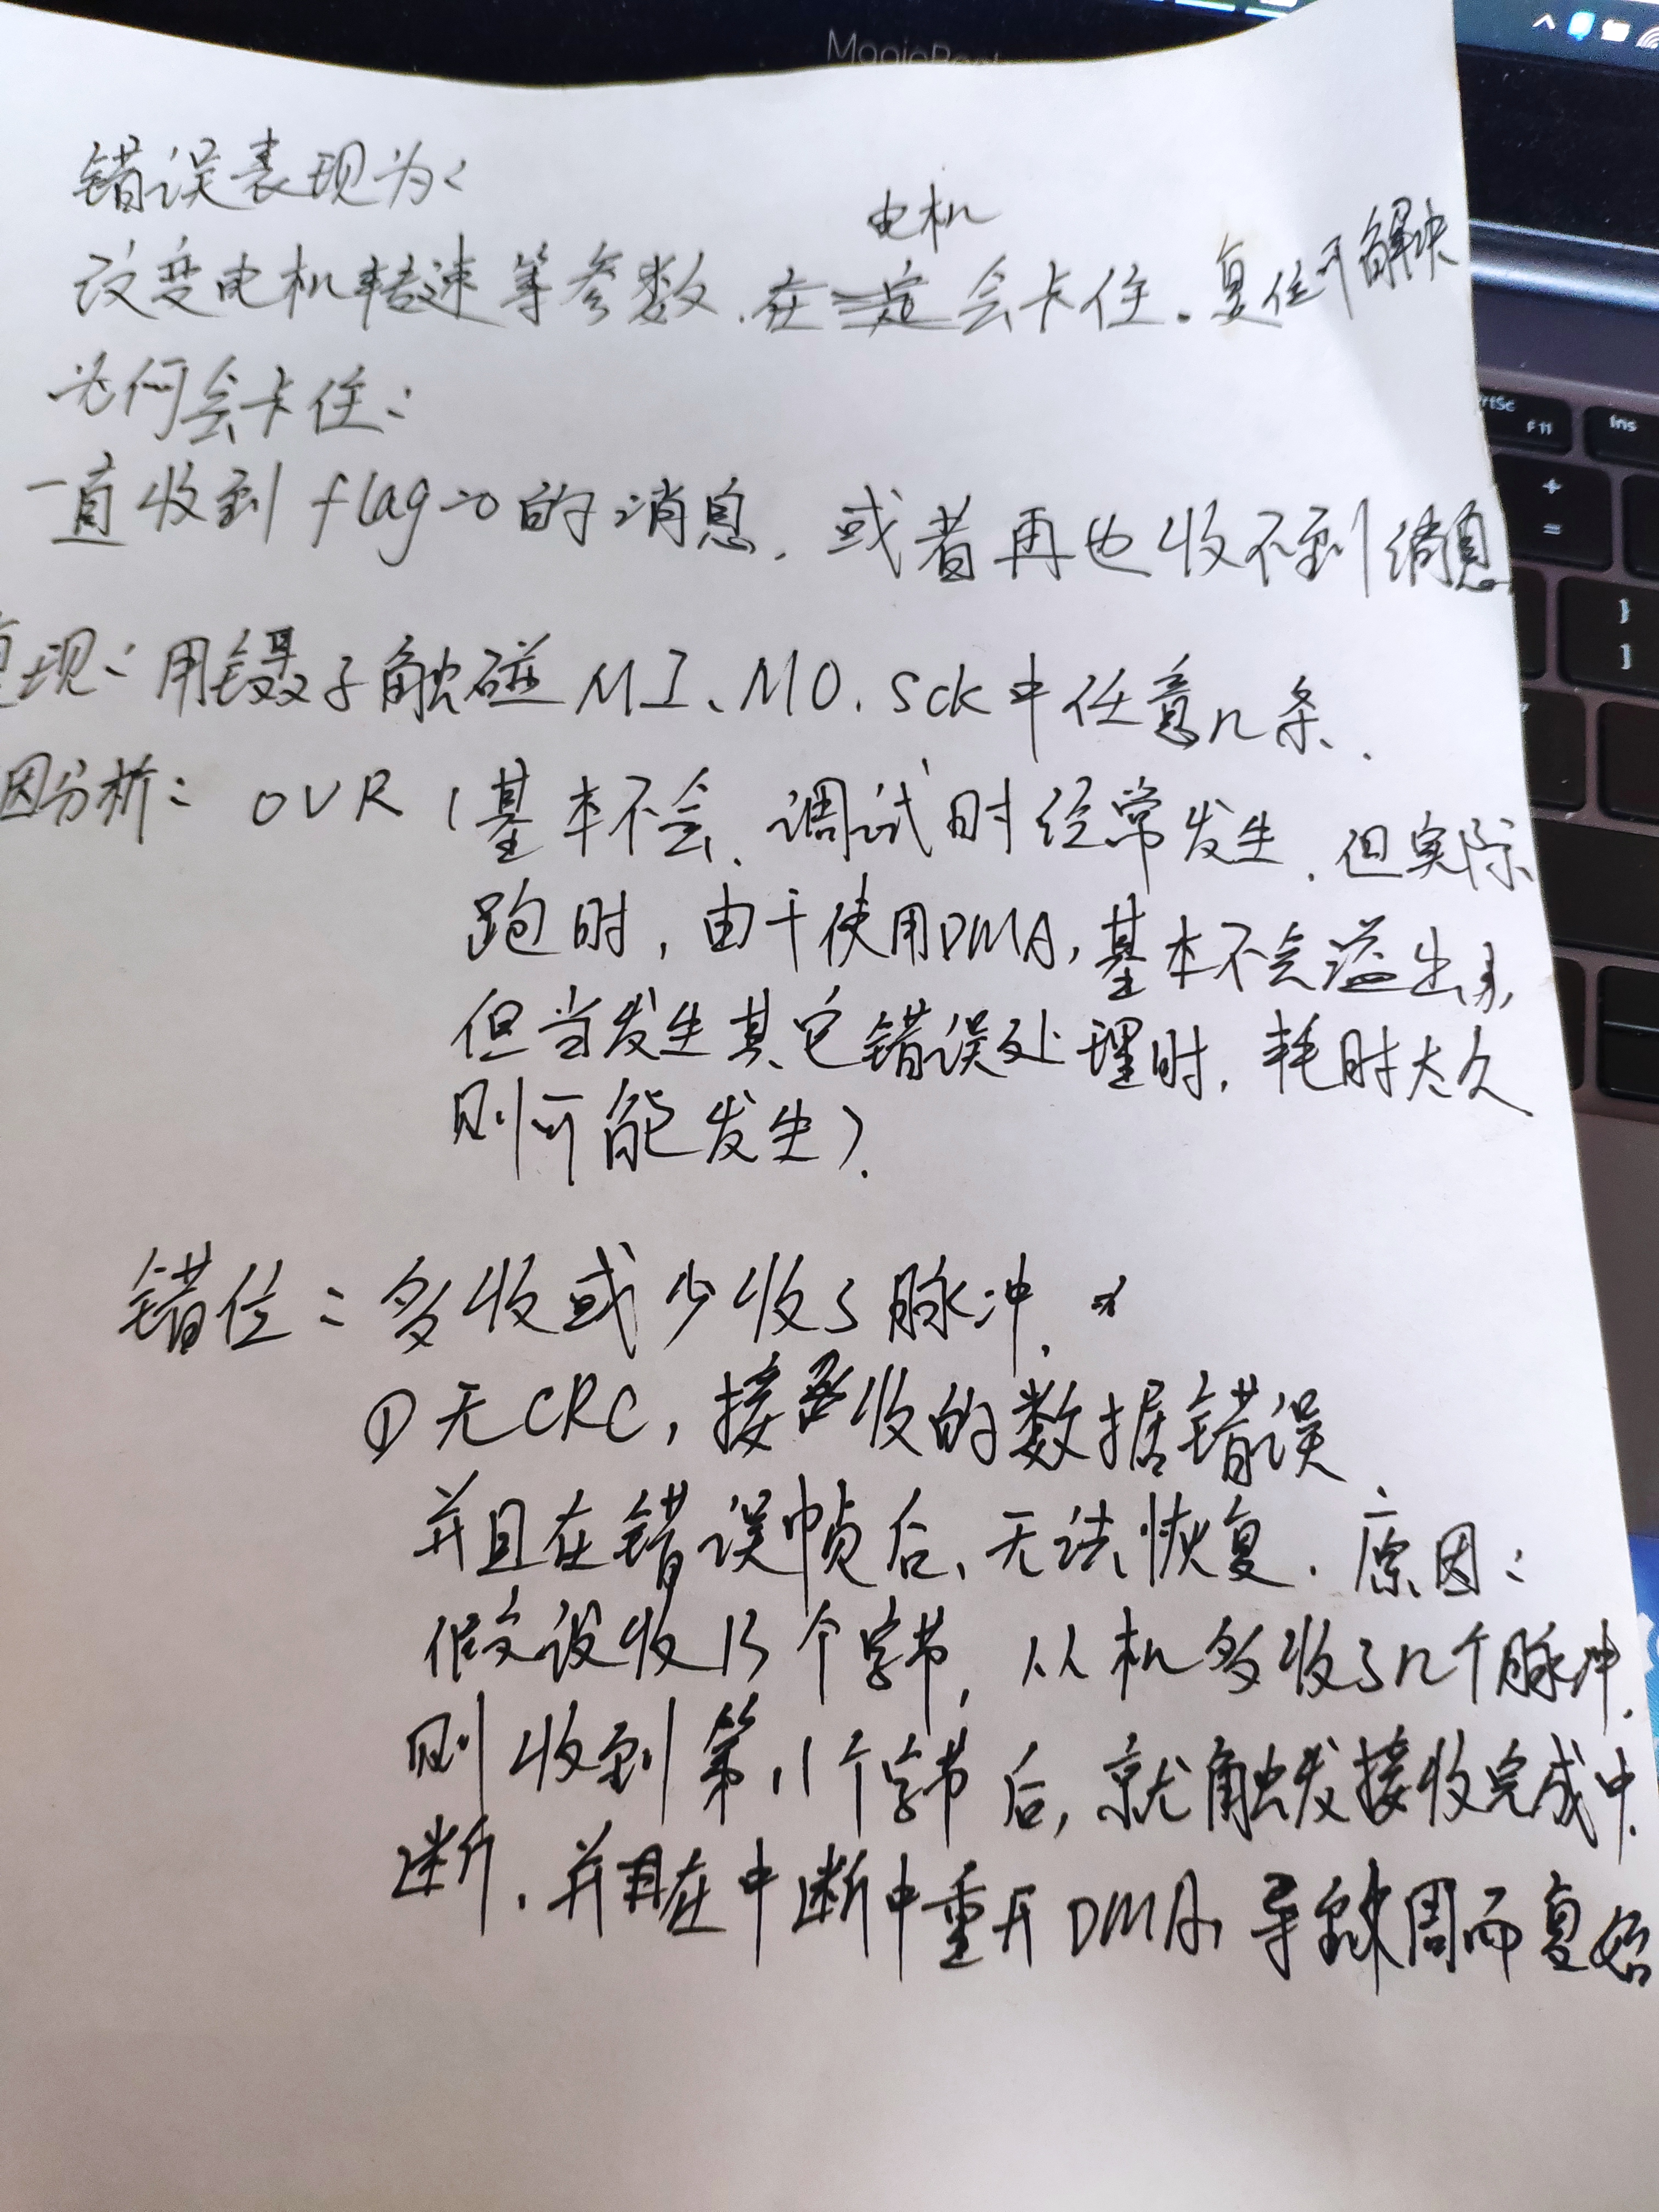 MagicBook
错误表现为:
改变电机转速等参数.在电机会卡住.复位可解决
为何会卡住:
一直收到flag=0的消息.或者再也收不到消息
复现:用镊子触碰MI、MO.SCK中任意几条.
因分析: OVR(基本不会.调试时经常发生.但实际
跑时,由于使用DMA,基本不会溢出,
但当发生其它错误处理时,耗时太久
则可能发生).
错位:多收或少收了脉冲.
①无CRC,接收的数据错误、
并且在错误帧后、无法恢复.原因:
假设收13个字节,从机多收了几个脉冲.
则收到第11个字节后,就触发接收完成中
断.并且在中断中重开DMA,导致周而复始
PrtSc
F11
Ins
+
=
}
]